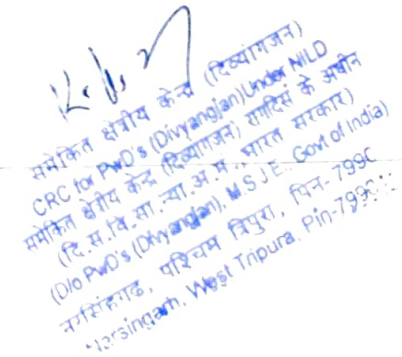 समेकित क्षेत्रीय केन्द्र (दिव्यांगजन)
CRC for PwD's (Divyangjan) Under NILD
समेकित क्षेत्रीय केन्द्र (दिव्यांगजन) रागदिसं के अधीन
(दि.स.वि.सा.न्या.अ.म., भारत सरकार)
(D/o PwD's (Divyangjan), M.S.J.E., Govt of India)
नरसिंहगढ, पश्चिम त्रिपुरा, पिन-799
Narsingarh, West Tripura, Pin-799